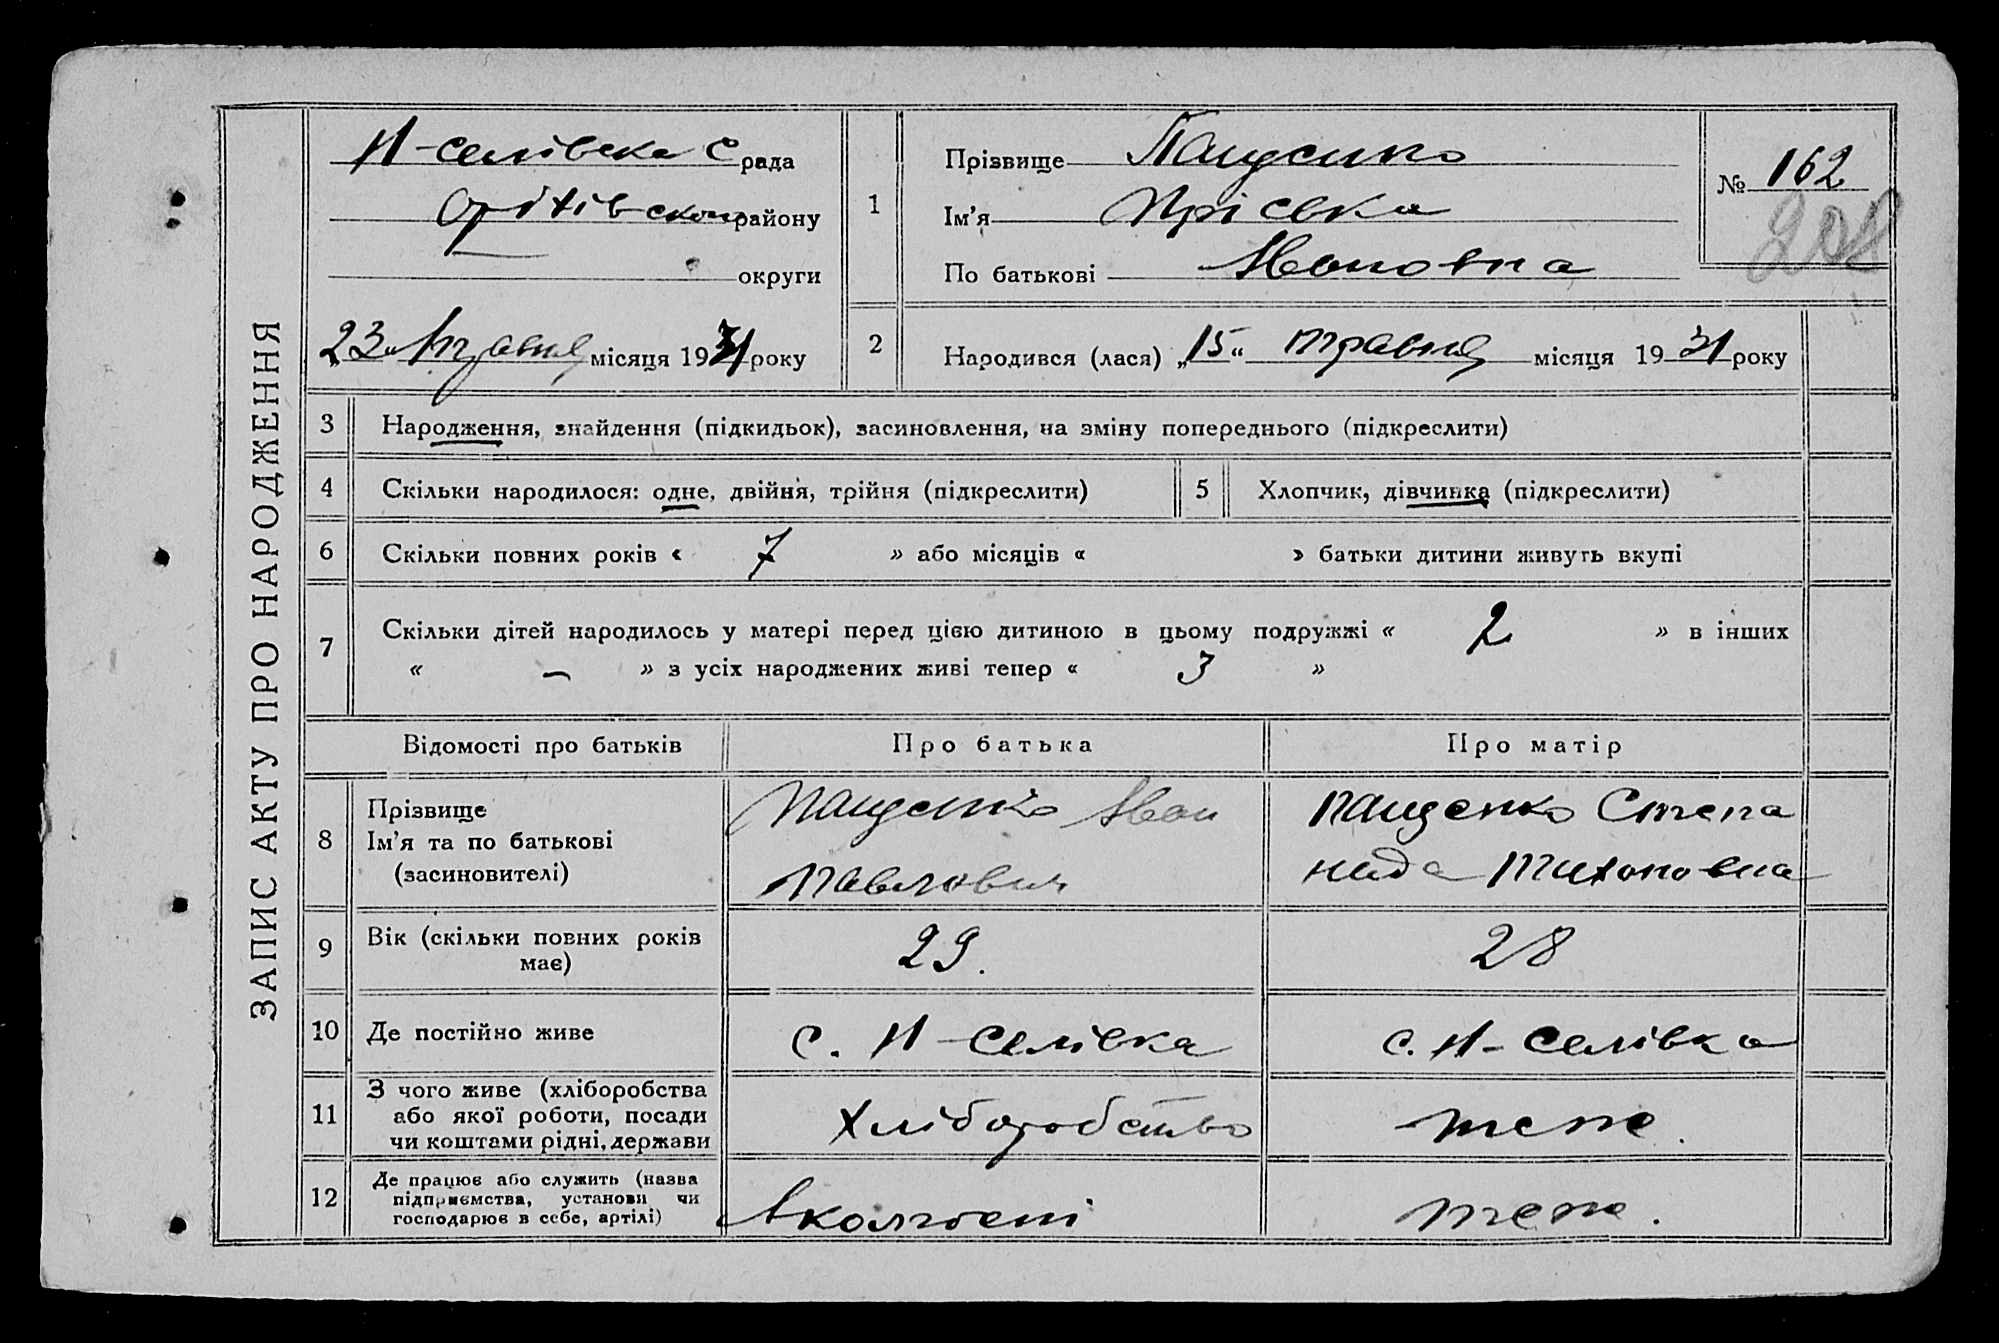 ЗАПИС АКТУ ПРО НАРОДЖЕННЯ
Н-селівська С рада
Оріхівського району
округи
„23" травня місяця 1931 року
1
Прізвище Пащенко
Ім'я Пріська
По батькові Івановна
№ 162
208
2
Народився (лася) „15" травня місяця 1931 року
3 Народження, знайдення (підкидьок), засиновлення, на зміну попереднього (підкреслити)
4 Скільки народилося: одне, двійня, трійня (підкреслити) 5 Хлопчик, дівчинка (підкреслити)
6 Скільки повних років « 7 » або місяців « » батьки дитини живуть вкупі
7 Скільки дітей народилось у матері перед цією дитиною в цьому подружжі « 2 » в інших
« – » з усіх народжених живі тепер « 3 »
Відомості про батьків Про батька Про матір
8 Прізвище
Ім'я та по батькові
(засиновителі)
Пащенко Іван
Павлович
Пащенко Степа
нида Тихоновна
9 Вік (скільки повних років
має)
29.
28
10 Де постійно живе с. Н-Селівка с. Н-Селівка
11 З чого живе (хліборобства
або якої роботи, посади
чи коштами рідні, держави
Хліборобство
теж.
12 Де працює або служить (назва
підприємства, установи чи
господарює в себе, артілі)
в колгоспі
теж.